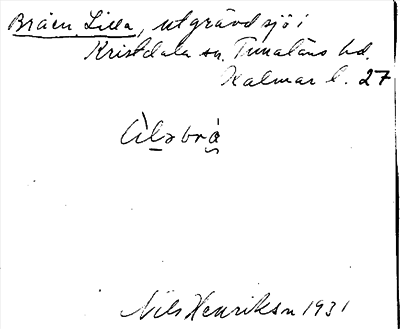 Bråen. Lilla, utgrävd sjö i
Kristdala sn. Tunaläns hd.
Kalmar l. 27
Lìlabrå̀
Nils Henriksn 1931